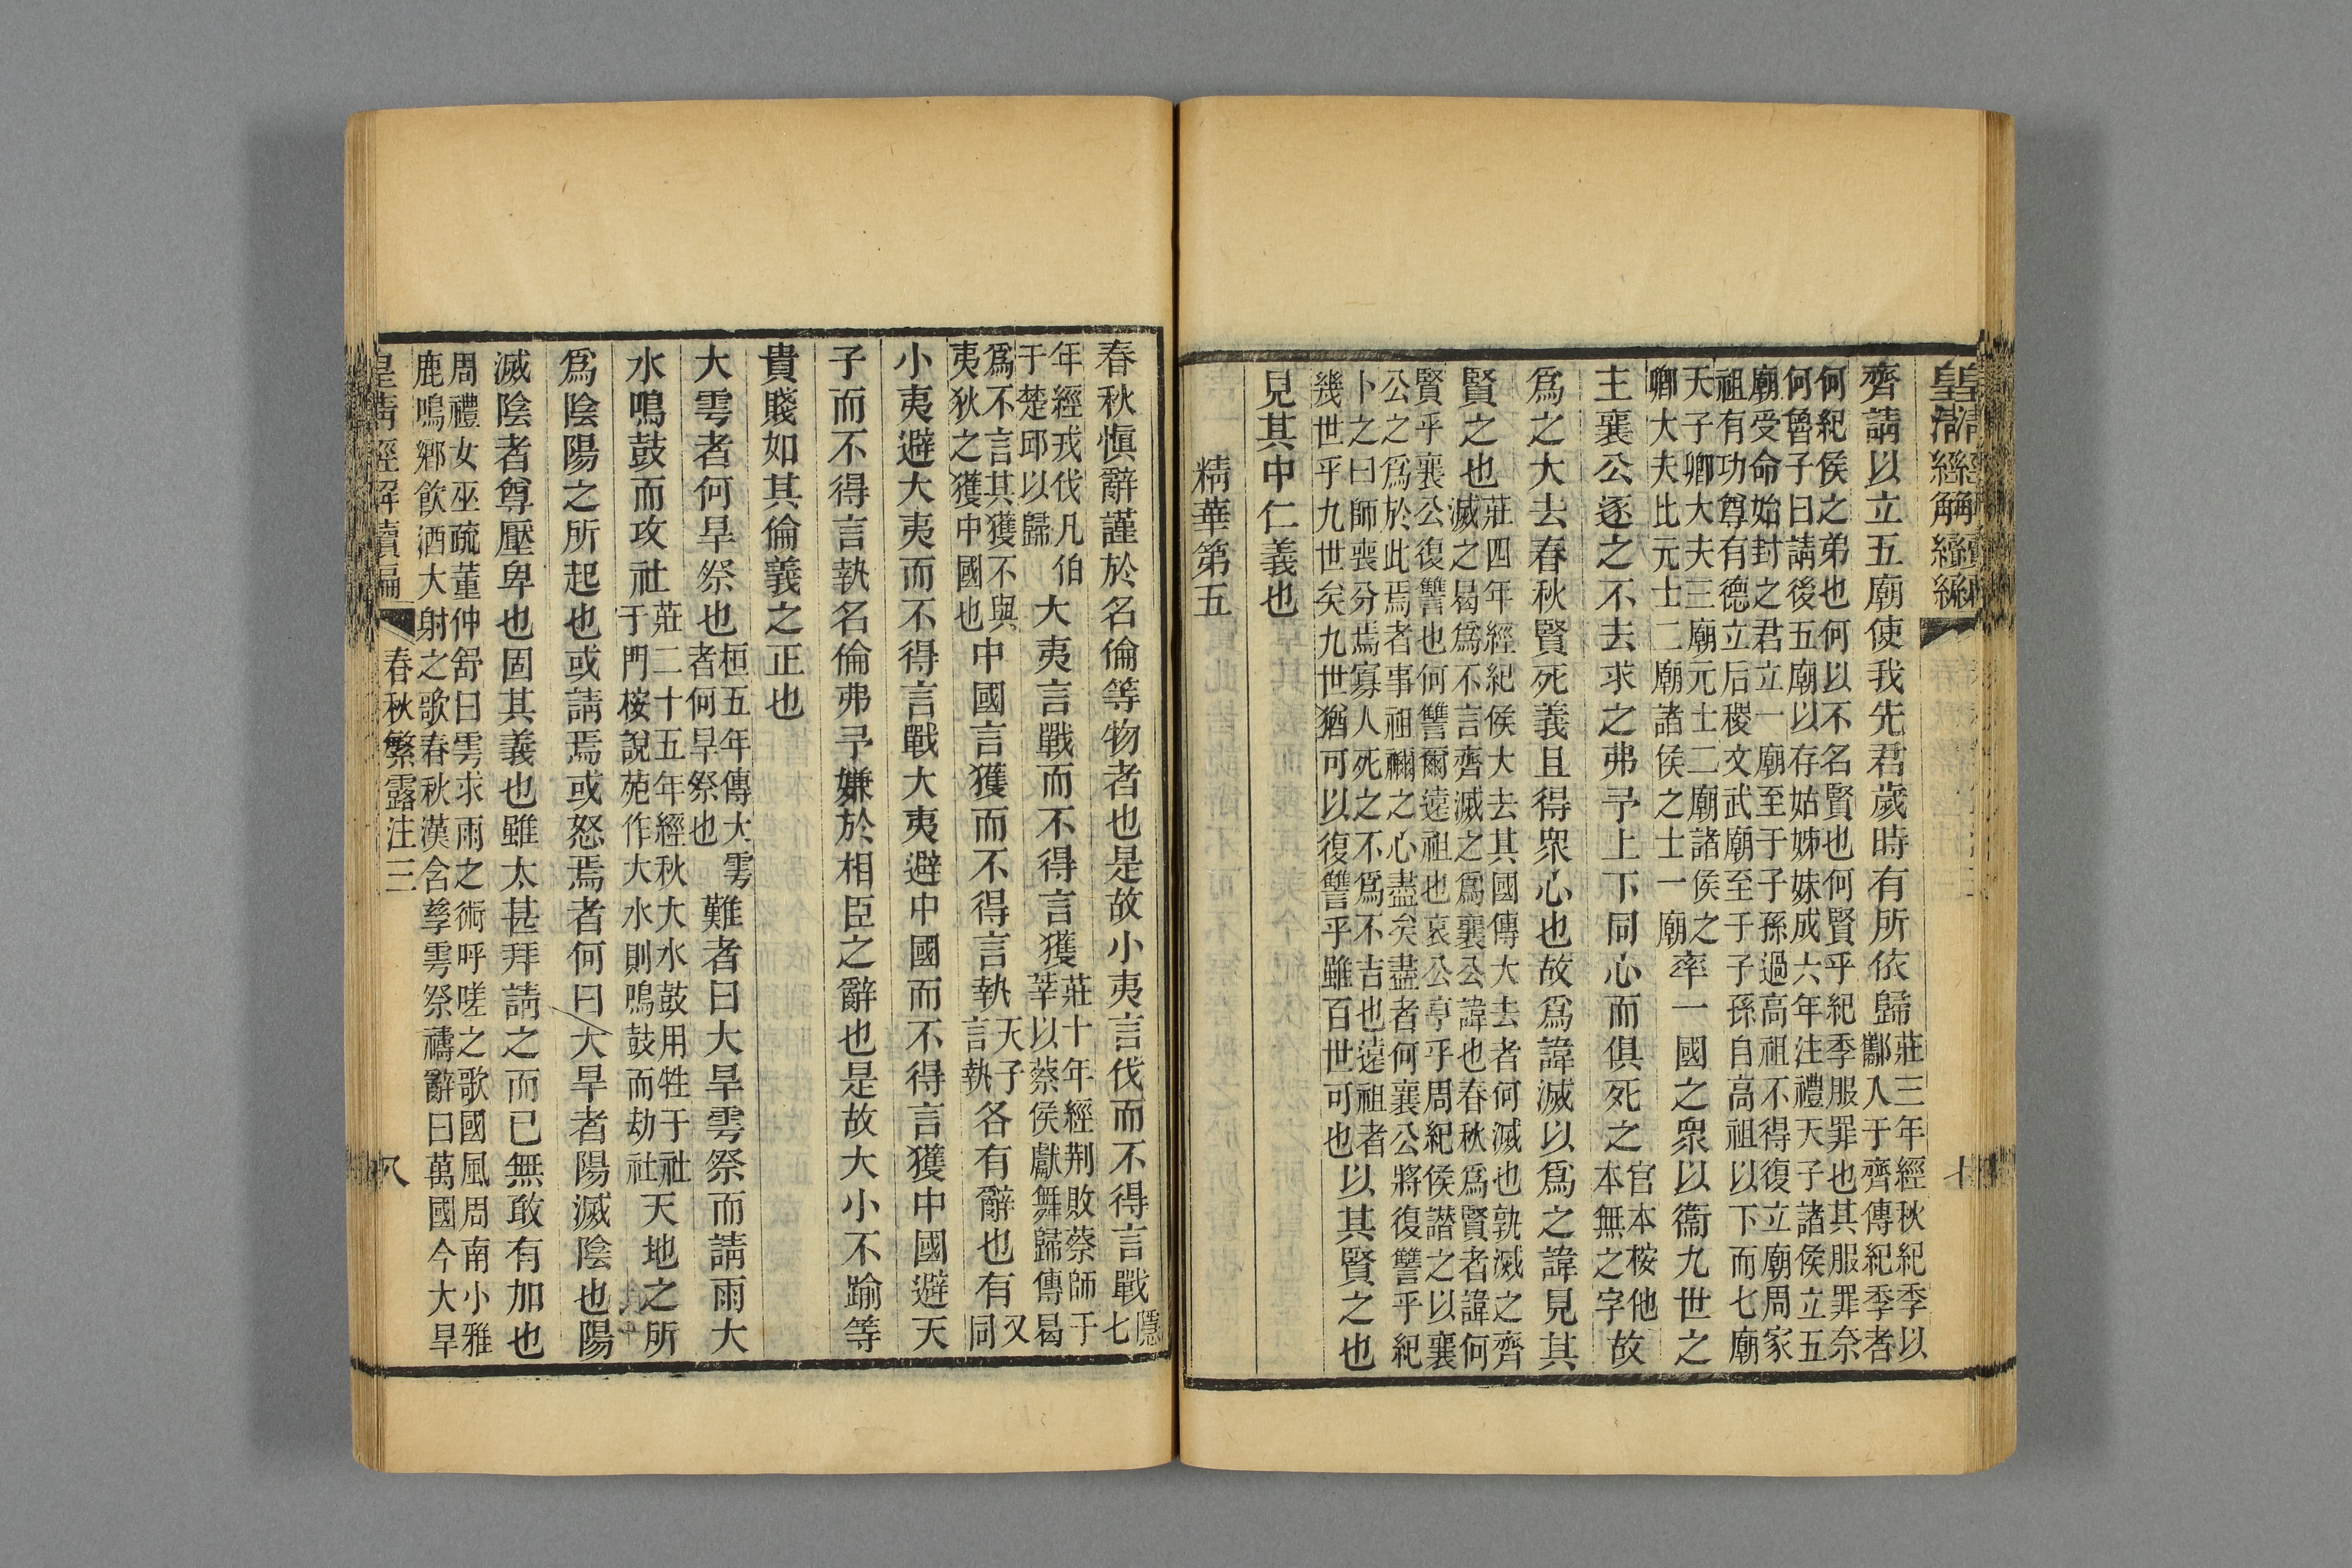 皇清經解續編
七
齊請以立五廟使我先君歲時有所依歸莊三年經秋紀季以酅入于齊傳紀季者
何紀侯之弟也何以不名賢也何賢乎紀季服罪也其服罪奈何魯子曰請後五廟以存姑姊妹成六年注禮天子諸侯立五
廟受命始封之君立一廟至于子孫過高祖不得復立廟周家祖有功尊有德立后稷文武廟至于子孫自高祖以下而七廟
天子卿大夫三廟元士二廟諸侯之卿大夫比元士二廟諸侯之士一廟率一國之衆以衞九世之
主襄公逐之不去求之弗予上下同心而俱死之官本桉他本無之字故
爲之大去春秋賢死義且得衆心也故爲諱滅以爲之諱見其
賢之也莊四年經紀侯大去其國傳大去者何滅也孰滅之齊滅之曷爲不言齊滅之爲襄公諱也春秋爲賢者諱何
賢乎襄公復讐也何讐爾遠祖也哀公亨乎周紀侯譖之以襄公之爲於此焉者事祖禰之心盡矣盡者何襄公將復讐乎紀
卜之曰師喪分焉寡人死之不爲不吉也遠祖者幾世乎九世矣九世猶可以復讐乎雖百世可也以其賢之也
見其中仁義也
精華第五
春秋愼辭謹於名倫等物者也是故小夷言伐而不得言戰隱七
年經戎伐凡伯于楚邱以歸大夷言戰而不得言獲莊十年經荆敗蔡師于莘以蔡侯獻舞歸傳曷
爲不言其獲不與夷狄之獲中國也中國言獲而不得言執天子言執各有辭也有又同
小夷避大夷而不得言戰大夷避中國而不得言獲中國避天
子而不得言執名倫弗予嫌於相臣之辭也是故大小不踰等
貴賤如其倫義之正也
大雩者何旱祭也桓五年傳大雩者何旱祭也難者曰大旱雩祭而請雨大
水鳴鼓而攻社莊二十五年經秋大水鼓用牲于社于門桉說苑作大水則鳴鼓而劫社天地之所
爲陰陽之所起也或請焉或怒焉者何曰大旱者陽滅陰也陽
滅陰者尊壓卑也固其義也雖太甚拜請之而已無敢有加也
周禮女巫疏董仲舒曰雩求雨之術呼嗟之歌國風周南小雅鹿鳴鄉飲酒大射之歌春秋漢含孳雩祭禱辭曰萬國今大旱
皇清經解續編
春秋繁露注三
八